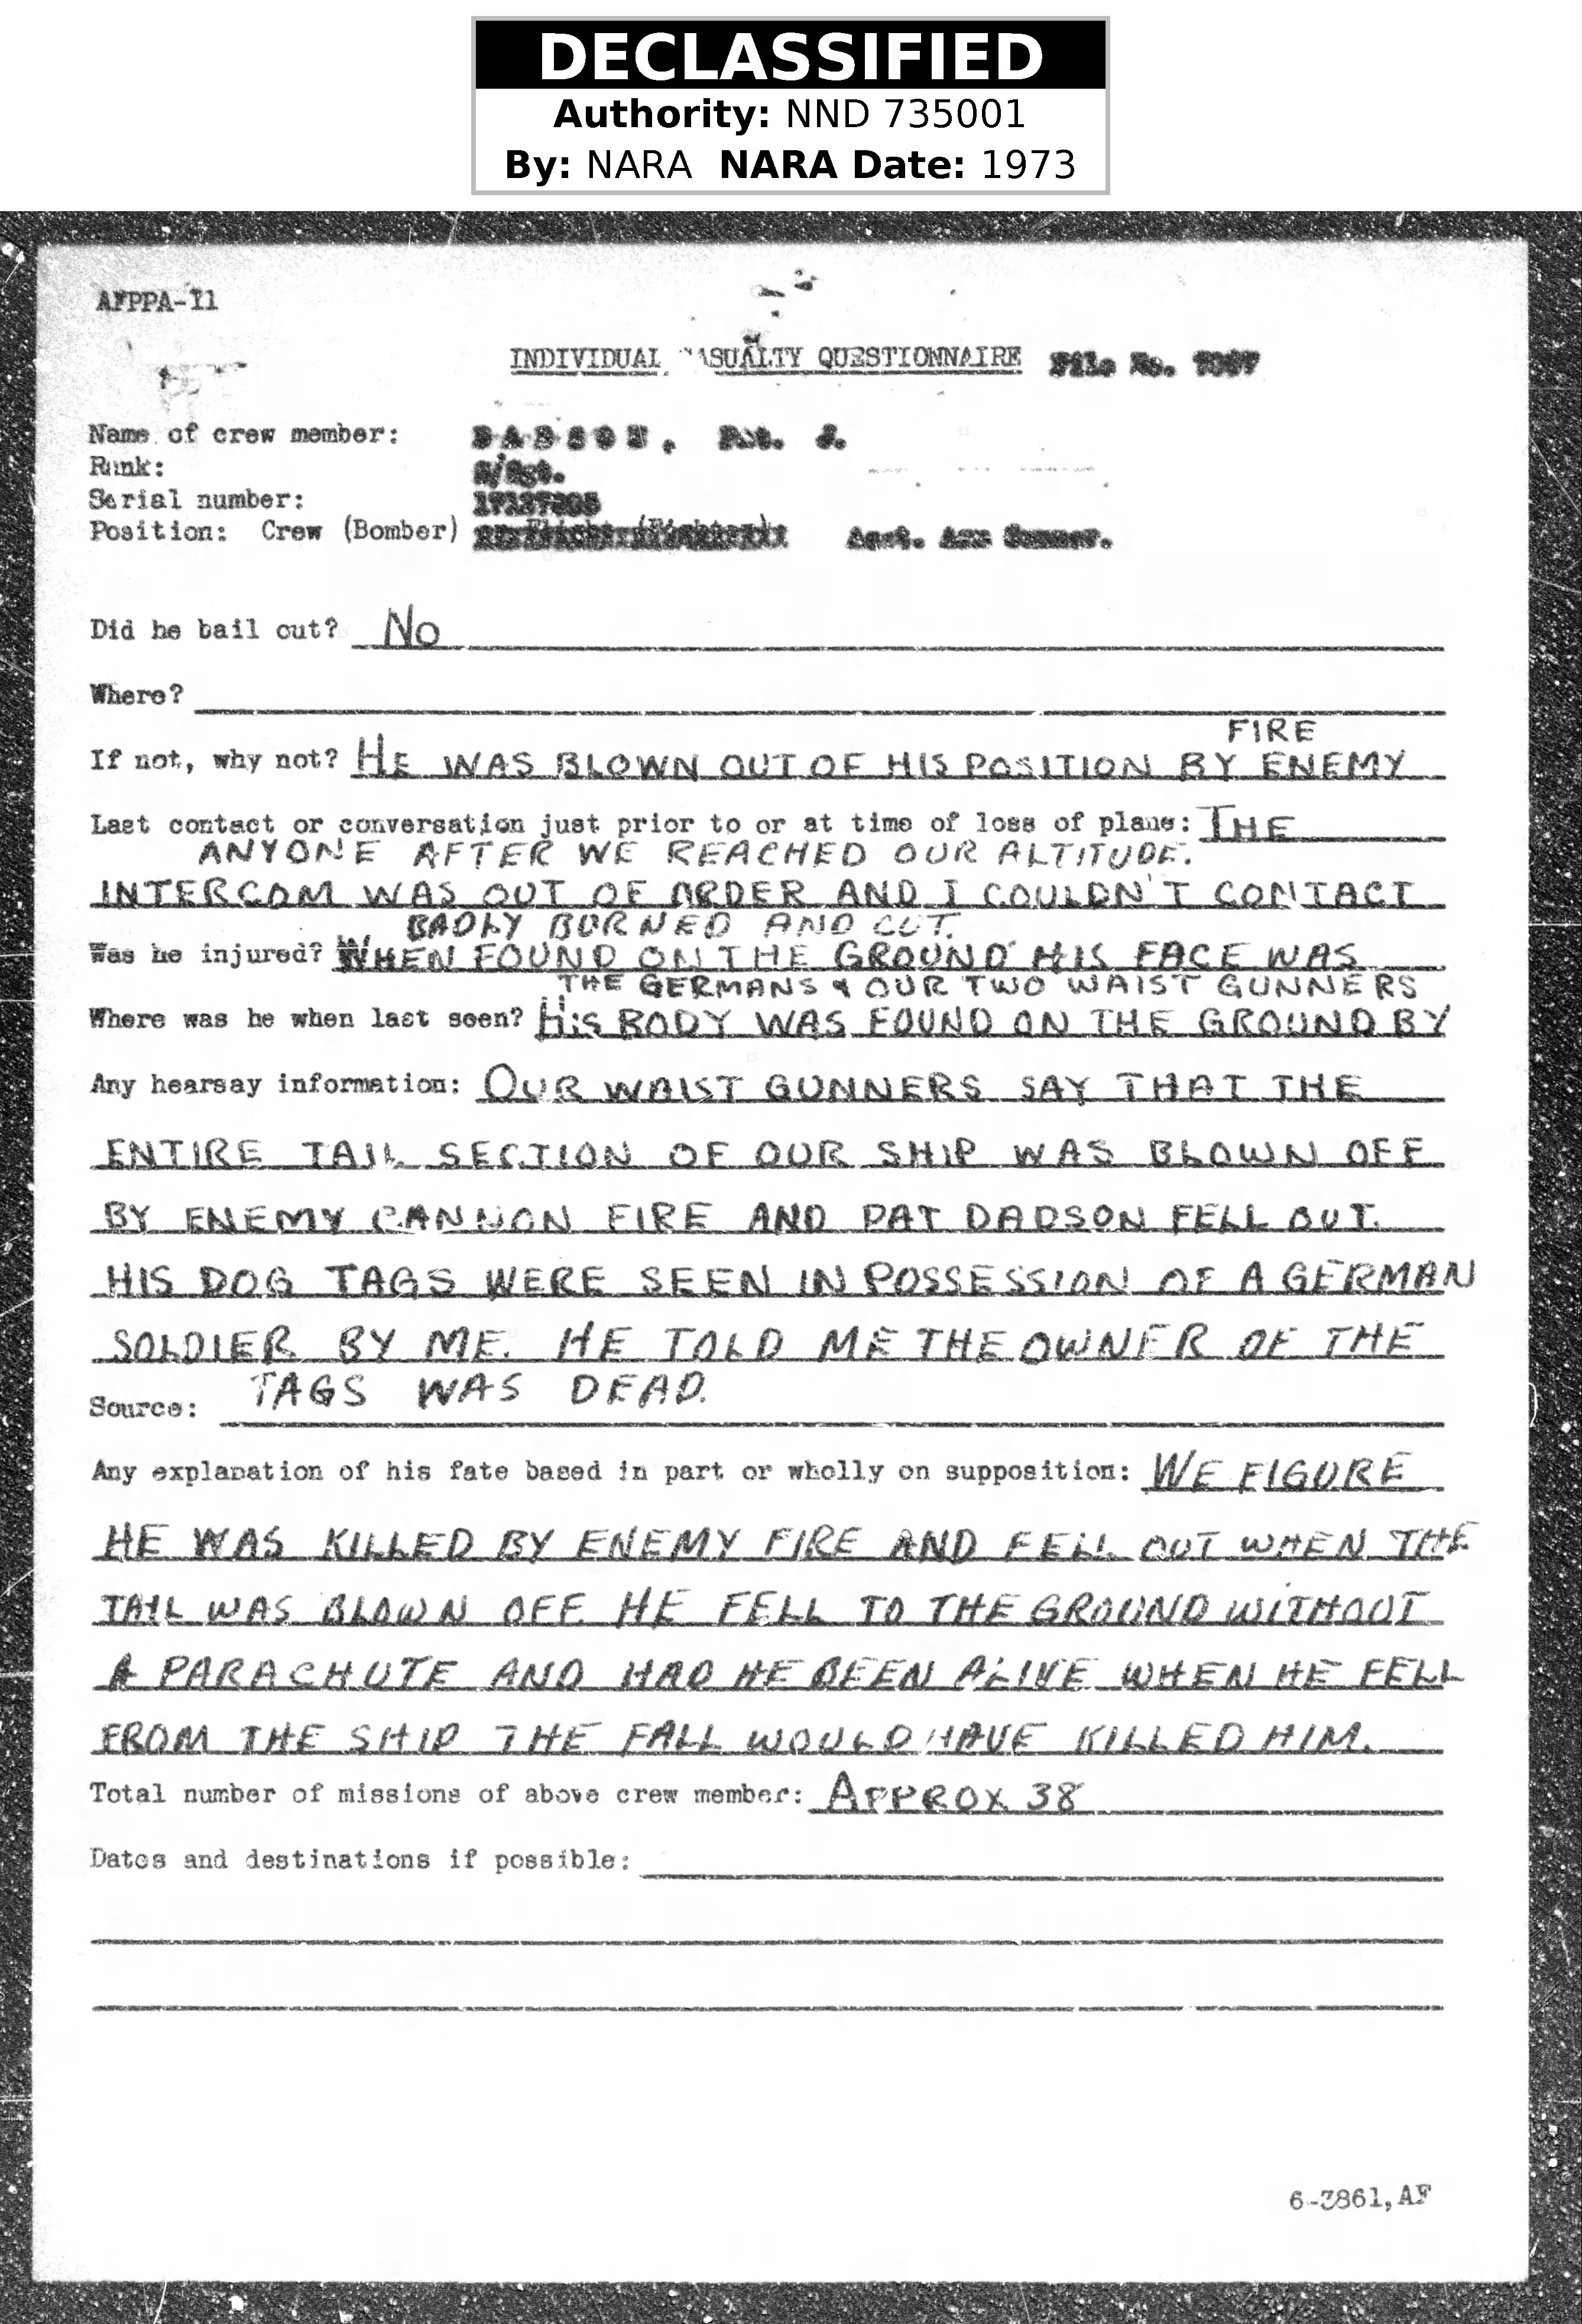 DECLASSIFIED
Authority: NND 735001
By: NARA NARA Date: 1973
AFPPA-11
INDIVIDUAL CASUALTY QUESTIONNAIRE File No.
Name of crew member: DADSON, Pat. J.
Rank: S/Sgt.
Serial number:
Position: Crew (Bomber) Asst. Arm Gunner.
Did he bail out? No
Where?
FIRE
If not, why not? HE WAS BLOWN OUT OF HIS POSITION BY ENEMY
Last contact or conversation just prior to or at time of loss of plane: THE
ANYONE AFTER WE REACHED OUR ALTITUDE.
INTERCOM WAS OUT OF ORDER AND I COULDN'T CONTACT
BADLY BURNED AND CUT.
Was he injured? WHEN FOUND ON THE GROUND HIS FACE WAS
THE GERMANS & OUR TWO WAIST GUNNERS
Where was he when last seen? HIS BODY WAS FOUND ON THE GROUND BY
Any hearsay information: OUR WAIST GUNNERS SAY THAT THE
ENTIRE TAIL SECTION OF OUR SHIP WAS BLOWN OFF
BY ENEMY CANNON FIRE AND PAT DADSON FELL OUT.
HIS DOG TAGS WERE SEEN IN POSSESSION OF A GERMAN
SOLDIER BY ME. HE TOLD ME THE OWNER OF THE
TAGS WAS DEAD.
Source:
Any explanation of his fate based in part or wholly on supposition: WE FIGURE
HE WAS KILLED BY ENEMY FIRE AND FELL OUT WHEN THE
TAIL WAS BLOWN OFF. HE FELL TO THE GROUND WITHOUT
A PARACHUTE AND HAD HE BEEN ALIVE WHEN HE FELL
FROM THE SHIP THE FALL WOULD HAVE KILLED HIM.
Total number of missions of above crew member: APPROX 38
Dates and destinations if possible:
6-3861,AF